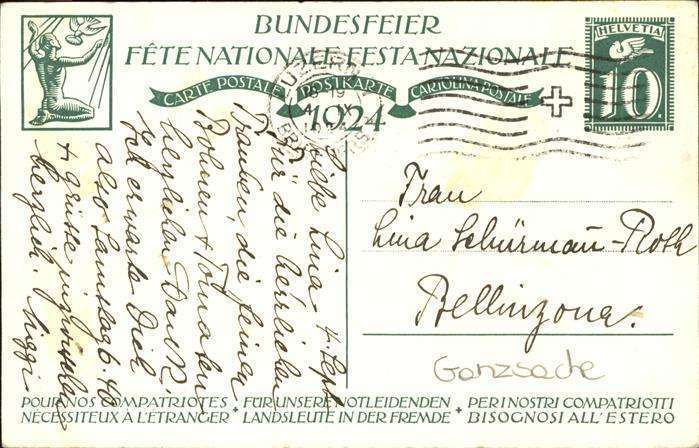 BUNDESFEIER
FÊTE NATIONALE FESTA NAZIONALE
CARTE POSTALE POSTKARTE CARTOLINA POSTALE
1924
HELVETIA
10
LUZERN
4. Sept.
Liebe Lina
Für die herrlichen
Trauben, die feinen
Bohnen + Tomaten
herzlichen Dank.
Ich erwarte Dich
also Samstag 6.
+ grüsse
herzlich.
Frau
Lina Schürmann-Roth
Bellinzona.
Ganzsache
POUR NOS COMPATRIOTES
NÉCESSITEUX À L'ÉTRANGER
FÜR UNSERE NOTLEIDENDEN
LANDSLEUTE IN DER FREMDE
PER I NOSTRI COMPATRIOTTI
BISOGNOSI ALL'ESTERO